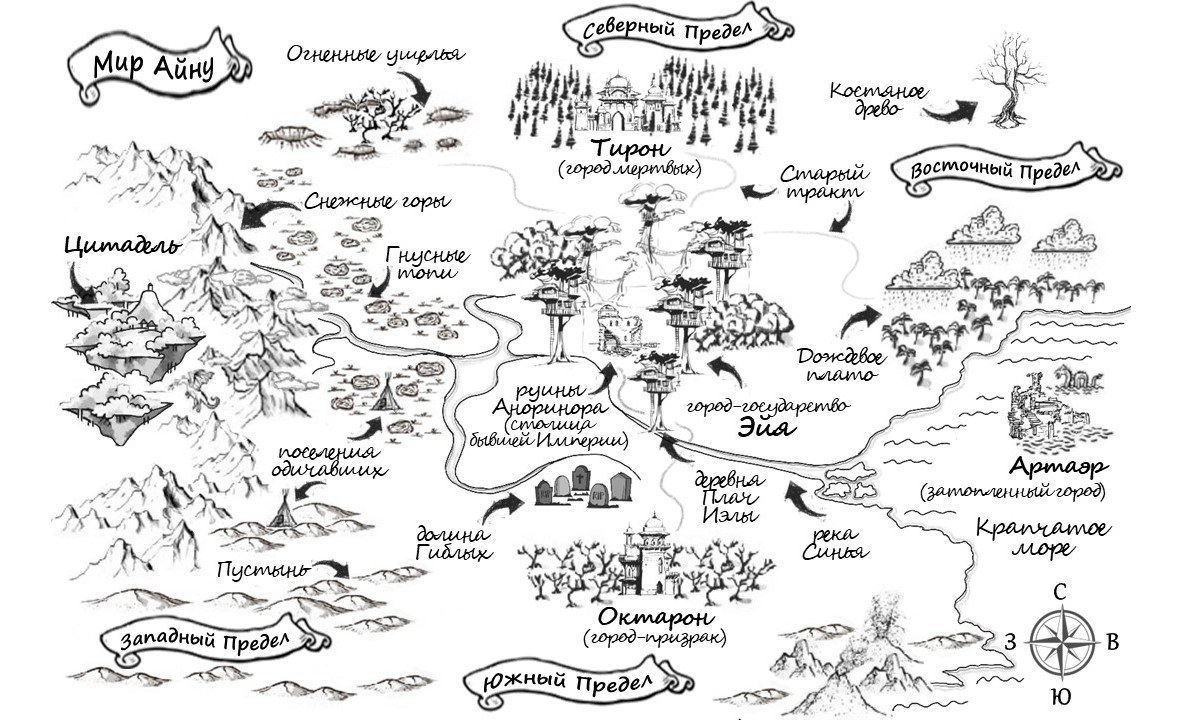 Северный Предел
Мир Айну
Огненные ущелья
Костяное
древо
Тирон
(город мертвых)
Восточный Предел
Старый
тракт
Снежные горы
Цитадель
Гнусные
топи
Дождевое
плато
руины
Аноринора
(столица
бывшей Империи)
город-государство
Эйя
поселения
одичавших
Артаэр
(затопленный город)
деревня
Плач
Иэлы
RIP
RIP
долина
Гиблых
река
Синья
Крапчатое
море
Пустынь
Октарон
(город-призрак)
Западный Предел
Южный Предел
С
З
В
Ю